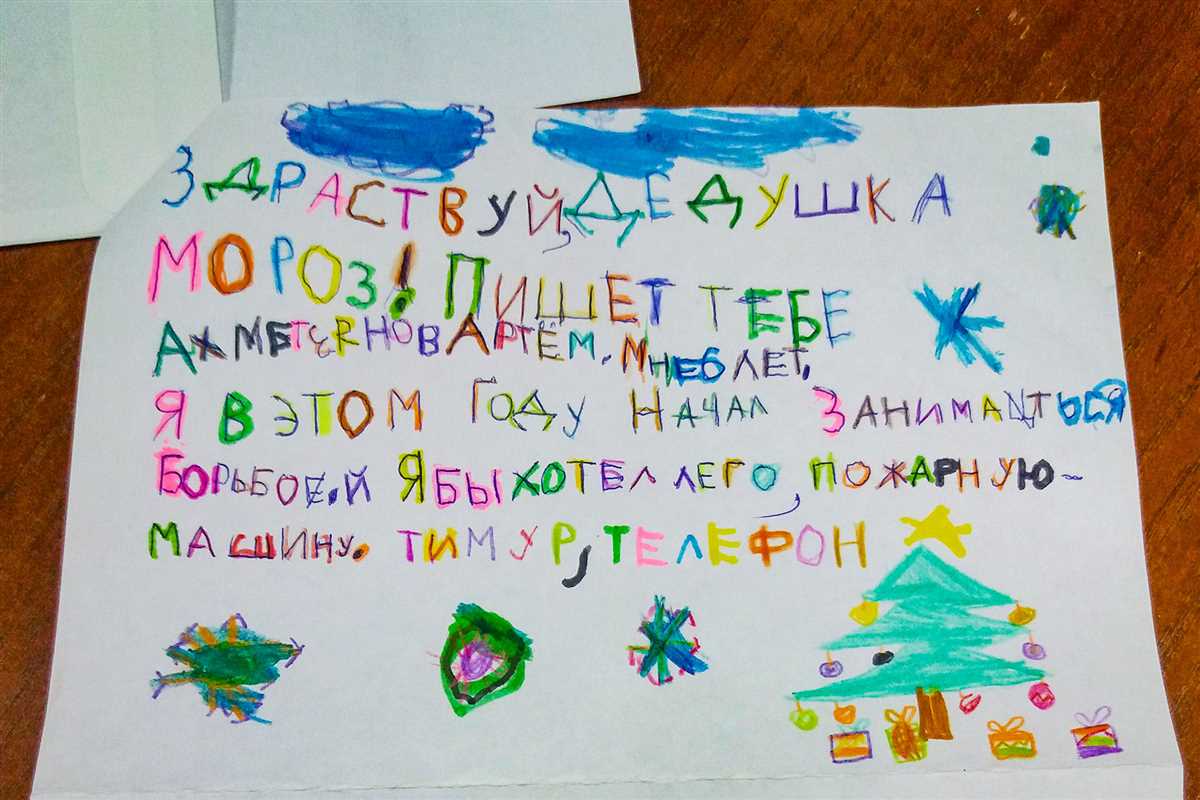 ЗДРАСТВУЙ, ДЕДУШКА
МОРОЗ! ПИШЕТ ТЕБЕ
АХМЕТСЯНОВ АРТЁМ. МНЕ 6 ЛЕТ.
Я В ЭТОМ ГОДУ НАЧАЛ ЗАНИМАТЬСЯ
БОРЬБОЕ.Й Я БЫ ХОТЕЛ ЛЕГО, ПОЖАРНУЮ-
МАШИНУ. ТИМУР, ТЕЛЕФОН